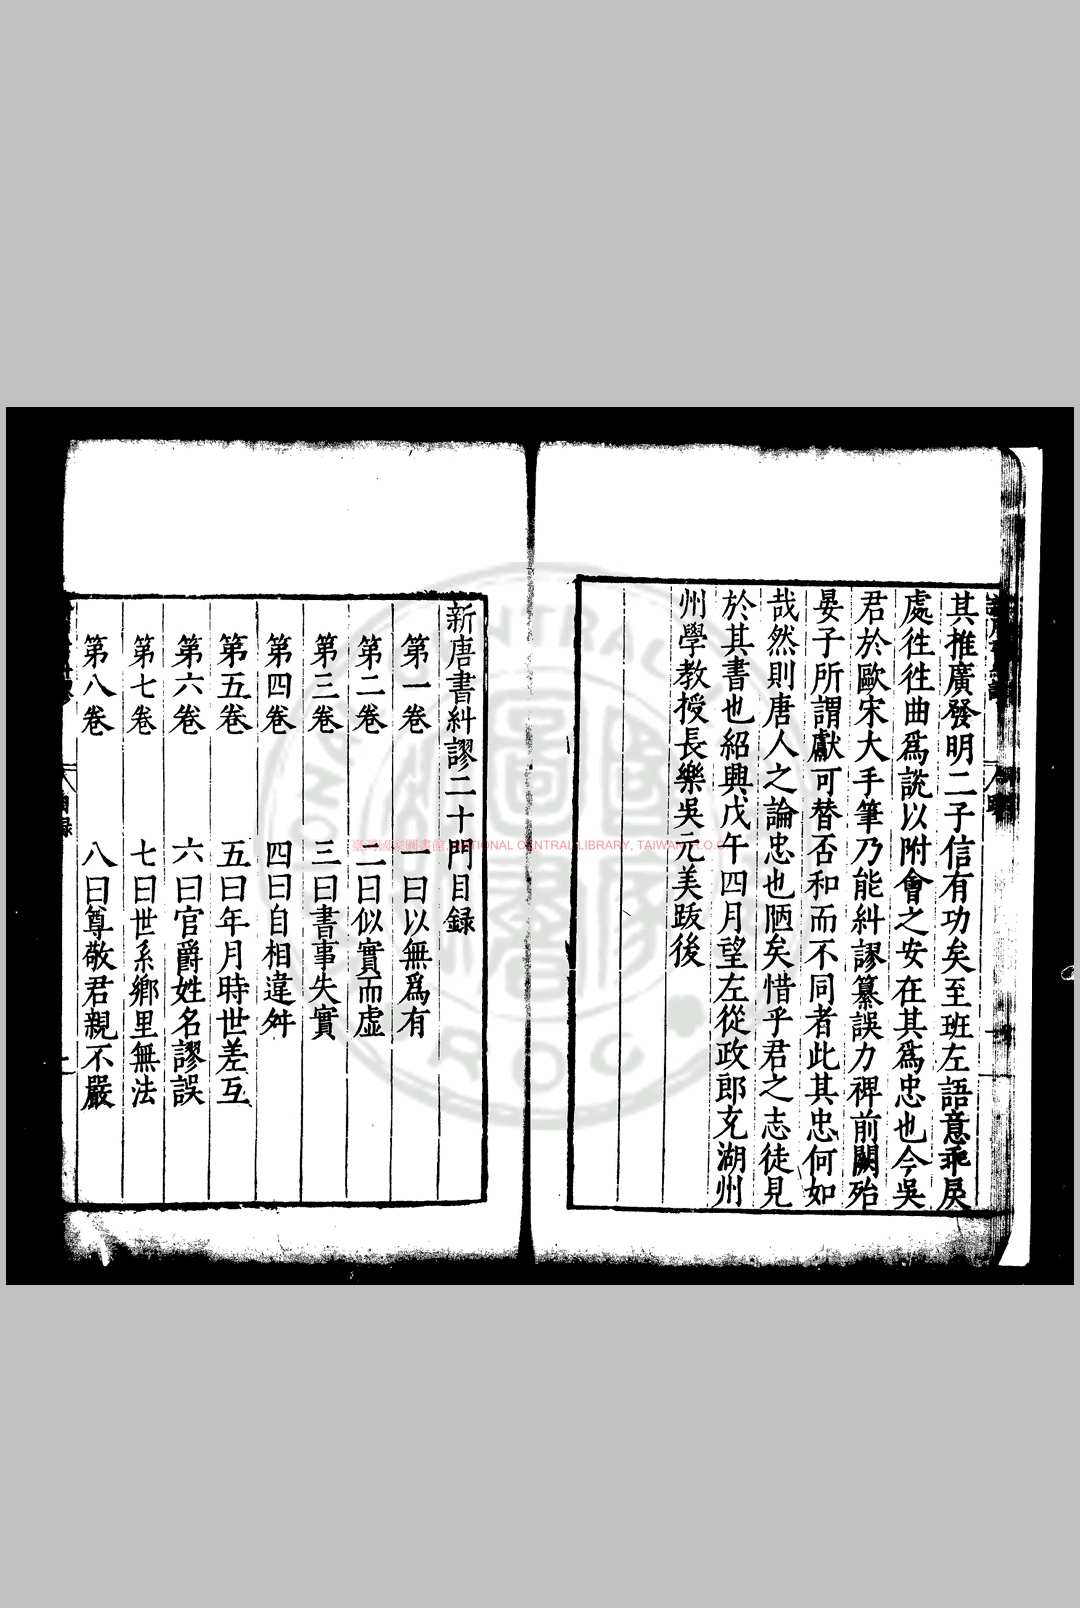 其推廣發明二子信有功矣至班左語意乖戾
處徃徃曲爲說以附會之安在其爲忠也今吳
君於歐宋大手筆乃能糾謬纂誤力裨前闕殆
晏子所謂獻可替否和而不同者此其忠何如
哉然則唐人之論忠也陋矣惜乎君之志徒見
於其書也紹興戊午四月望左從政郎充湖州
州學教授長樂吳元美跋後
新唐書糾謬二十門目録
第一卷 一曰以無爲有
第二卷 二曰似實而虛
第三卷 三曰書事失實
第四卷 四曰自相違舛
第五卷 五曰年月時世差互
第六卷 六曰官爵姓名謬誤
第七卷 七曰世系鄉里無法
第八卷 八曰尊敬君親不嚴
臺灣國家圖書館, NATIONAL CENTRAL LIBRARY, TAIWAN R.O.C.